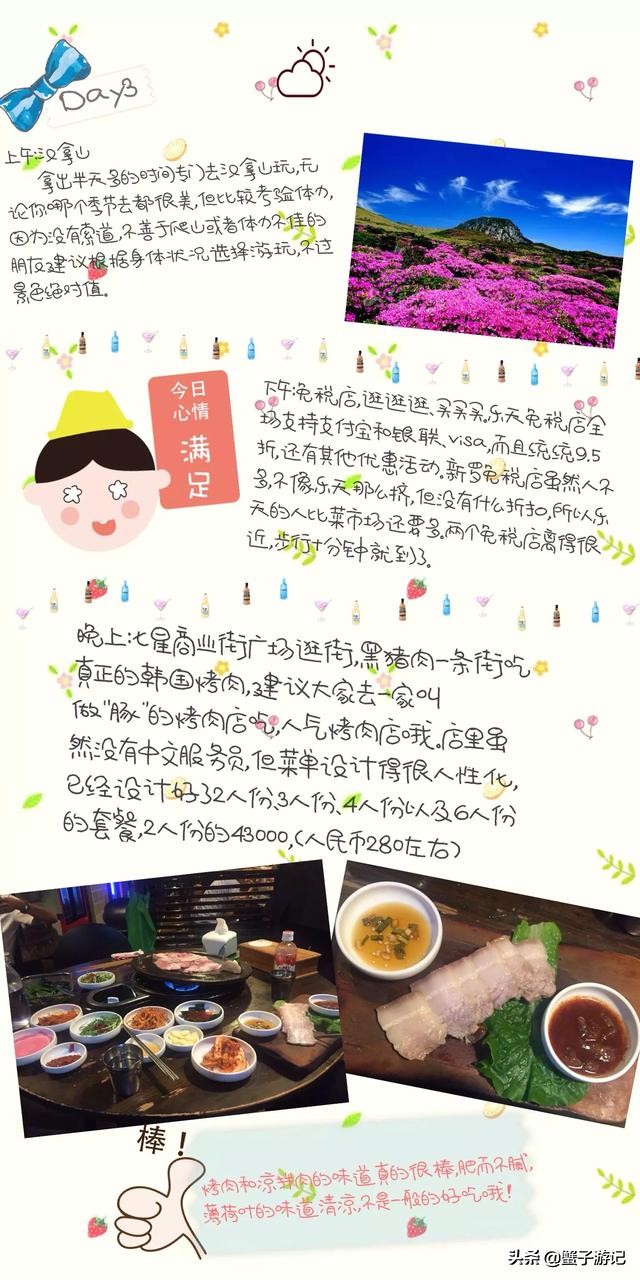 Day3
上午:汉拿山
拿出半天多的时间专门去汉拿山玩,无
论你哪个季节去都很美,但比较考验体力,
因为没有索道,不善于爬山或者体力不佳的
朋友建议根据身体状况选择游玩,不过
景色绝对值。
今日
心情
满足
下午:免税店,逛逛逛、买买买.乐天免税店全
场支持支付宝和银联、visa,而且统统9.5
折,还有其他优惠活动。新罗免税店虽然人不
多,不像乐天那么挤,但没有什么折扣,所以乐
天的人比菜市场还要多。两个免税店离得很
近,步行十分钟就到了。
晚上:七星商业街广场逛街,黑猪肉一条街吃
真正的韩国烤肉,建议大家去一家叫
做“豚”的烤肉店吃,人气烤肉店哦。店里虽
然没有中文服务员,但菜单设计得很人性化,
已经设计好了2人份、3人份、4人份以及6人份
的套餐,2人份的43000,(人民币280左右)
棒!
烤肉和凉拌肉的味道真的很棒,肥而不腻,
薄荷叶的味道清凉,不是一般的好吃哦!
头条 @蟹子游记